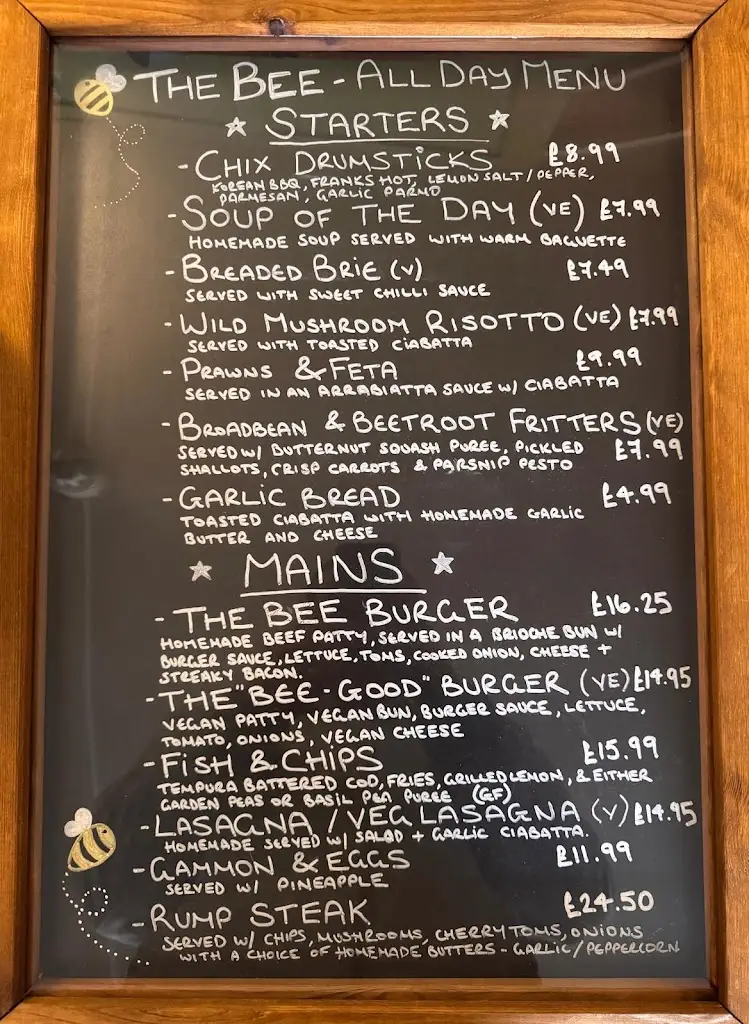 THE BEE - ALL DAY MENU
STARTERS
- CHIX DRUMSTICKS £8.99
KOREAN BBQ, FRANKS HOT, LEMON SALT/PEPPER,
PARMESAN, GARLIC PARMO
- SOUP OF THE DAY (VE) £7.99
HOMEMADE SOUP SERVED WITH WARM BAGUETTE
- BREADED BRIE (V) £7.49
SERVED WITH SWEET CHILLI SAUCE
- WILD MUSHROOM RISOTTO (VE) £7.99
SERVED WITH TOASTED CIABATTA
- PRAWNS & FETA £9.99
SERVED IN AN ARRABIATTA SAUCE W/ CIABATTA
- BROADBEAN & BEETROOT FRITTERS (VE)
SERVED W/ BUTTERNUT SQUASH PUREE, PICKLED £7.99
SHALLOTS, CRISP CARROTS & PARSNIP PESTO
- GARLIC BREAD £4.99
TOASTED CIABATTA WITH HOMEMADE GARLIC
BUTTER AND CHEESE
MAINS
- THE BEE BURGER £16.25
HOMEMADE BEEF PATTY, SERVED IN A BRIOCHE BUN W/
BURGER SAUCE, LETTUCE, TOMS, COOKED ONION, CHEESE +
STREAKY BACON.
- THE "BEE-GOOD" BURGER (VE) £14.95
VEGAN PATTY, VEGAN BUN, BURGER SAUCE, LETTUCE,
TOMATO, ONIONS, VEGAN CHEESE
- FISH & CHIPS £15.99
TEMPURA BATTERED COD, FRIES, GRILLED LEMON, & EITHER
GARDEN PEAS OR BASIL PEA PUREE (GF)
- LASAGNA / VEG LASAGNA (V) £14.95
HOMEMADE SERVED W/ SALAD + GARLIC CIABATTA.
- GAMMON & EGGS £11.99
SERVED W/ PINEAPPLE
- RUMP STEAK £24.50
SERVED W/ CHIPS, MUSHROOMS, CHERRY TOMS, ONIONS
WITH A CHOICE OF HOMEMADE BUTTERS - GARLIC/PEPPERCORN